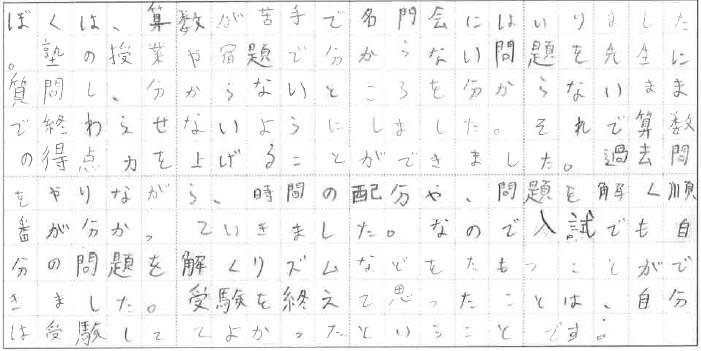 ぼくは、算数が苦手で名門会にはいりました
。塾の授業や宿題で分からない問題を先生に
質問し、分からないところを分からないまま
で終わらせないようにしました。それで算数
の得点力を上げることができました。過去問
をやりながら、時間の配分や、問題を解く順
番が分かっていきました。なので入試でも自
分の問題を解くリズムなどをたもつことがで
きました。受験を終えて思ったことは、自分
は受験しててよかったということです。